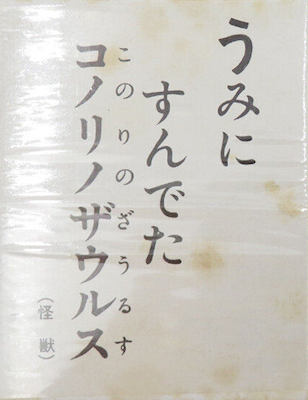 うみに
すんでた
コノリノザウルス
このりのざうるす
（怪獣）